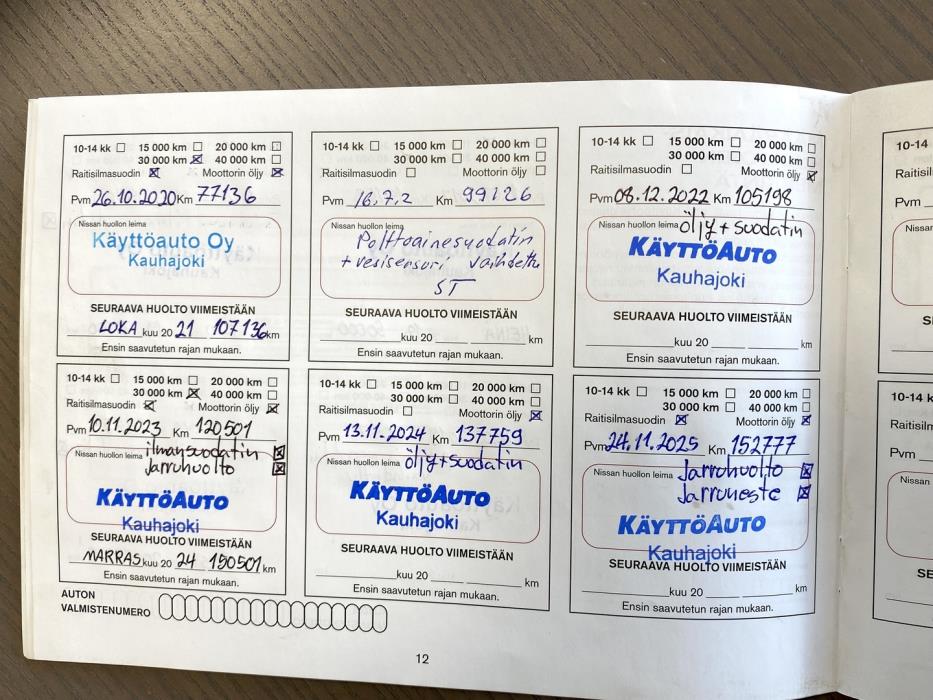 10-14 kk 15 000 km 20 000 km
30 000 km 40 000 km
Raitisilmasuodin Moottorin öljy
Pvm 26.10.2020 Km 77136
Nissan huollon leima
Käyttöauto Oy
Kauhajoki
SEURAAVA HUOLTO VIIMEISTÄÄN
LOKA kuu 20 21 107136 km
Ensin saavutetun rajan mukaan.
10-14 kk 15 000 km 20 000 km
30 000 km 40 000 km
Raitisilmasuodin Moottorin öljy
Pvm 16.7.2 Km 99126
Nissan huollon leima
Polttoainesuodatin
+ vesisensori vaihdettu
ST
SEURAAVA HUOLTO VIIMEISTÄÄN
kuu 20 km
Ensin saavutetun rajan mukaan.
10-14 kk 15 000 km 20 000 km
30 000 km 40 000 km
Raitisilmasuodin Moottorin öljy
Pvm 08.12.2022 Km 105198
Nissan huollon leima öljy + suodatin
KÄYTTÖAUTO
Kauhajoki
SEURAAVA HUOLTO VIIMEISTÄÄN
kuu 20 km
Ensin saavutetun rajan mukaan.
10-14 kk 15 000 km 20 000 km
30 000 km 40 000 km
Raitisilmasuodin Moottorin öljy
Pvm 10.11.2023 Km 120501
Nissan huollon leima ilmansuodatin
Jarruhuolto
KÄYTTÖAUTO
Kauhajoki
SEURAAVA HUOLTO VIIMEISTÄÄN
MARRAS kuu 20 24 150501 km
Ensin saavutetun rajan mukaan.
10-14 kk 15 000 km 20 000 km
30 000 km 40 000 km
Raitisilmasuodin Moottorin öljy
Pvm 13.11.2024 Km 137759
Nissan huollon leima öljy + suodatin
KÄYTTÖAUTO
Kauhajoki
SEURAAVA HUOLTO VIIMEISTÄÄN
kuu 20 km
Ensin saavutetun rajan mukaan.
10-14 kk 15 000 km 20 000 km
30 000 km 40 000 km
Raitisilmasuodin Moottorin öljy
Pvm 24.11.2025 Km 152777
Nissan huollon leima Jarruhuolto
Jarruneste
KÄYTTÖAUTO
Kauhajoki
SEURAAVA HUOLTO VIIMEISTÄÄN
kuu 20 km
Ensin saavutetun rajan mukaan.
AUTON
VALMISTENUMERO
12
10-14
Pvm
Nissan
10-14 k
Pvm
Nissan